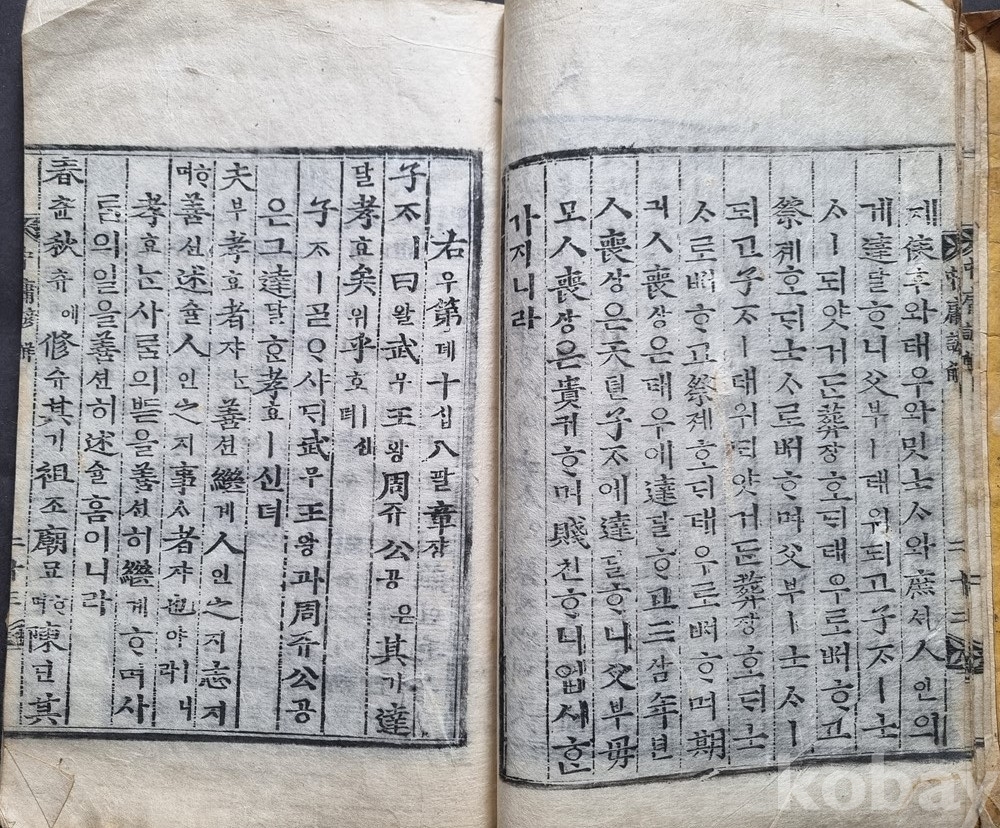 졔侯후와태우와밋士ᄉᆞ와庶셔人인의
게達달ᄒᆞ니父부ㅣ태위되고子ᄌᆞㅣ士
ᄉᆞㅣ되얏거든葬장호ᄃᆡ태우로ᄡᅥᄒᆞ고
祭졔호ᄃᆡ士ᄉᆞ로ᄡᅥᄒᆞ며父부ㅣ士ᄉᆞㅣ
되고子ᄌᆞㅣ태위되얏거든葬장호ᄃᆡ士
ᄉᆞ로ᄡᅥᄒᆞ고祭졔호ᄃᆡ태우로ᄡᅥᄒᆞ며期
긔ㅅ喪상은태우에達달ᄒᆞ고三삼年년
ㅅ喪상은天텬子ᄌᆞ에達달ᄒᆞ니父부毋
모ㅅ喪상은貴귀ᄒᆞ며賤쳔ᄒᆞ니업시ᄒᆞᆫ
가지니라
右우第뎨十십八팔章쟝
子ᄌᆞㅣ曰왈武무王왕周쥬公공은其기達
달孝효矣의乎호ㅣ신뎌
子ᄌᆞㅣᄀᆞᆯᄋᆞ샤ᄃᆡ武무王왕과周쥬公공
은그達달ᄒᆞᆫ孝효ㅣ신뎌
夫부孝효者쟈ᄂᆞᆫ善션繼계人인之지志지
ᄒᆞ며善션述슐人인之지事ᄉᆞ者쟈也야ㅣ니라
孝효ᄂᆞᆫ사ᄅᆞᆷ의ᄠᅳᆮ을善션히繼계ᄒᆞ며사
ᄅᆞᆷ의일을善션히述슐홈이니라
春츈秋츄에修슈其기祖조廟묘ᄒᆞ며陳딘其
kobay